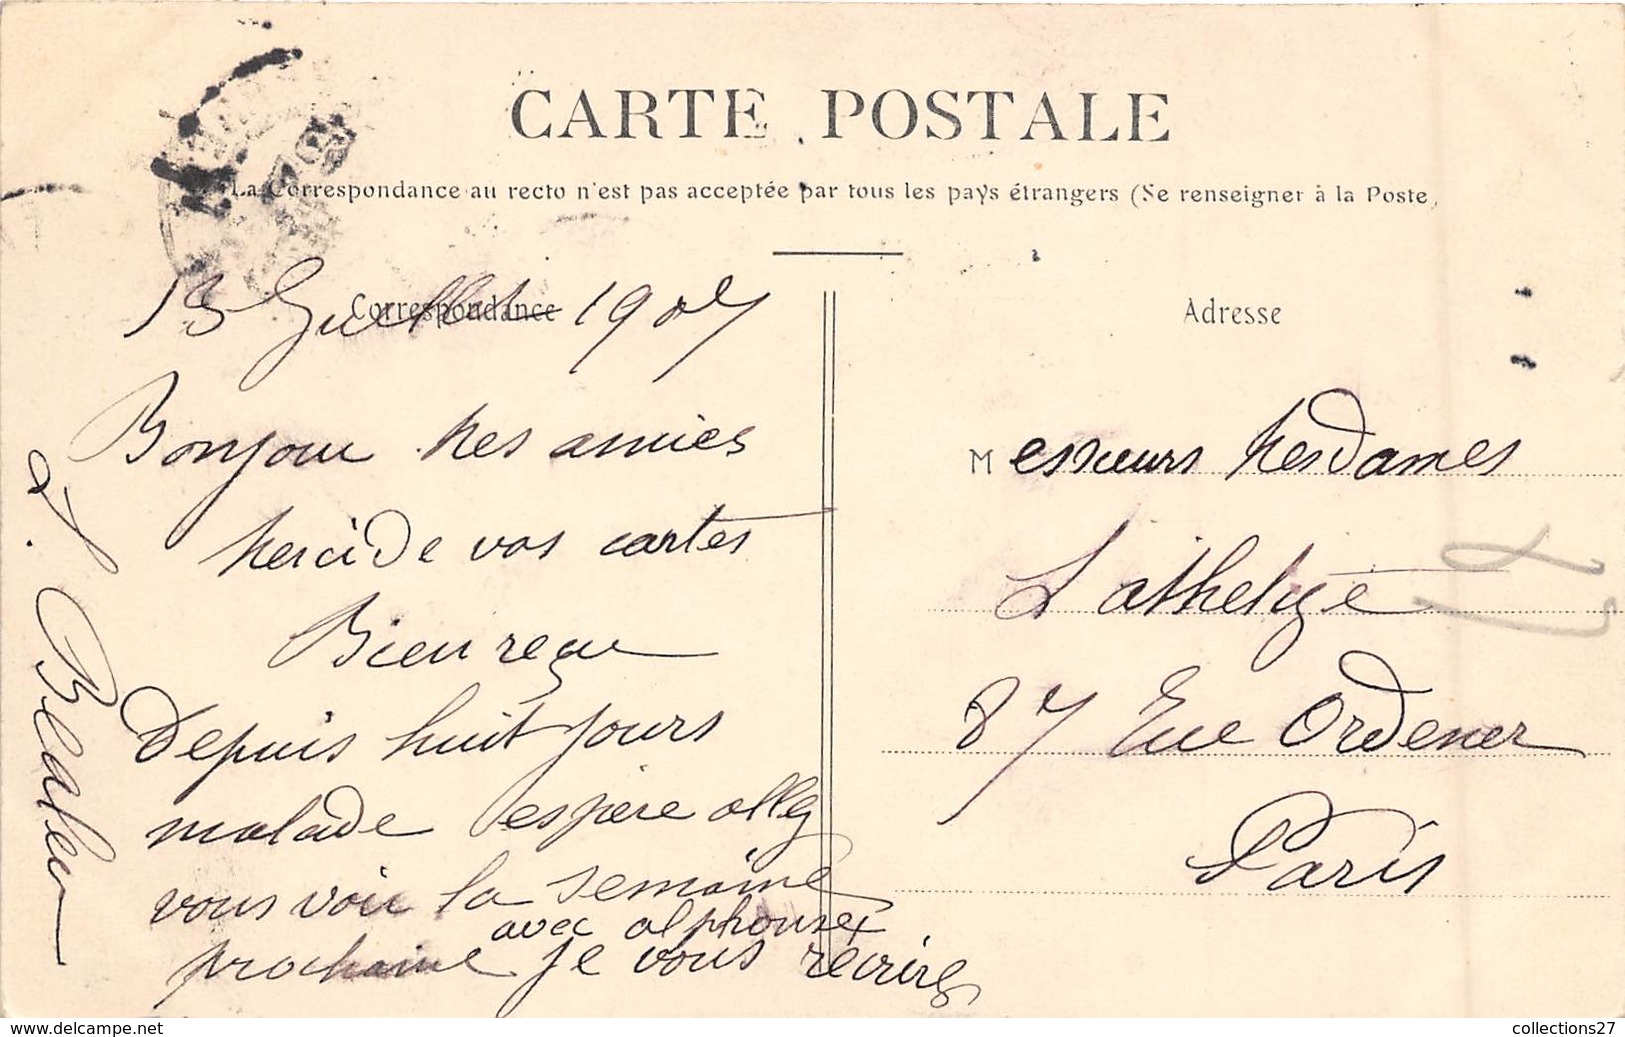 CARTE POSTALE
La Correspondance au recto n'est pas acceptée par tous les pays étrangers (Se renseigner à la Poste)
Correspondance
13 Juillet 1907
Bonjour Mes amies
Merci de vos cartes
Bien reçu
Depuis huit jours
malade espère allez
vous voir la semaine
avec alphonse
prochaine je vous recrires
Adresse
Messieurs Mesdames
87 Rue Ordener
Paris
www.delcampe.net
collections27